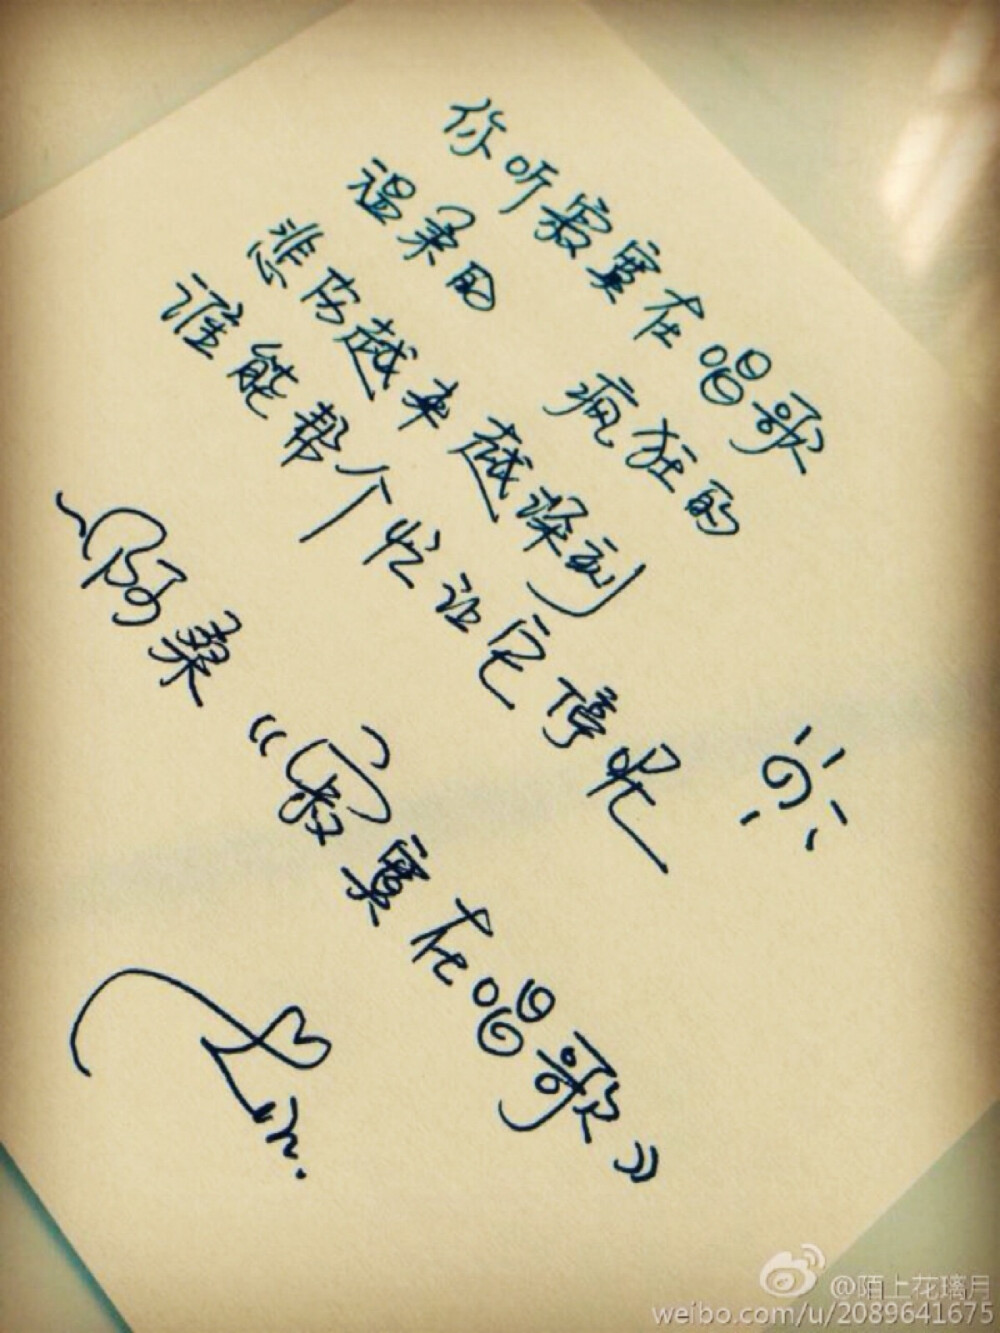 你听寂寞在唱歌
温柔的 疯狂的
悲伤越来越深刻
谁能帮个忙让它停呢
阿桑《寂寞在唱歌》
@陌上花璃月
weibo.com/u/2089641675